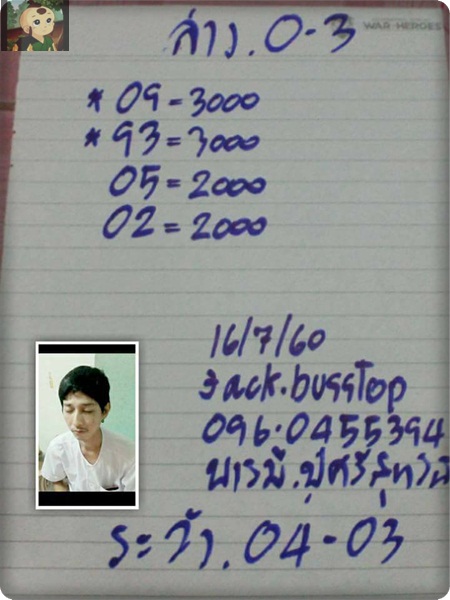 ล่าง.0-3
WAR HEROES
* 09=3000
* 93=3000
05=2000
02=2000
16/7/60
Jack.bussTop
096.0455394
บารมี.ปู่ศรีสุทโธ
ระวัง.04-03